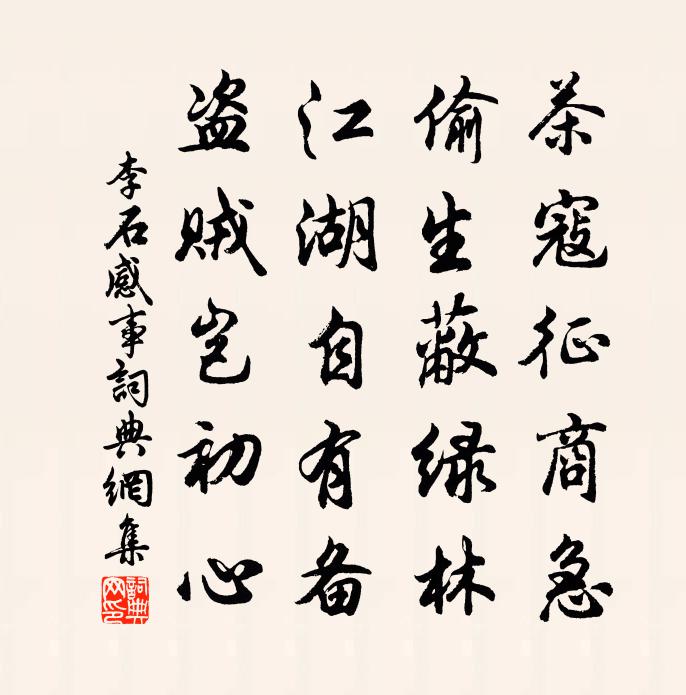 茶寇征商急
偷生蔽绿林
江湖自有备
盗贼岂初心
李石感事詞典網集
詞典網印